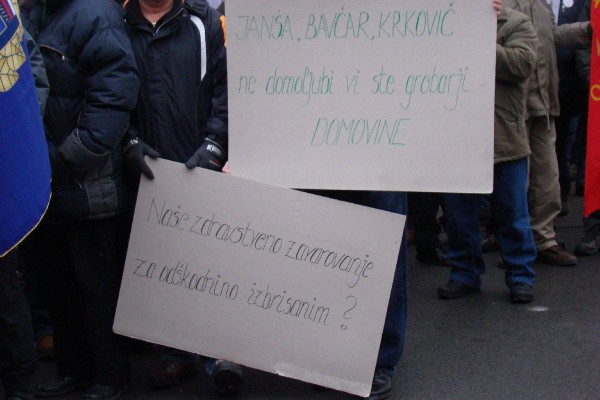 JANŠA, BAVČAR, KRKOVIČ
ne domoljubi vi ste grobarji
DOMOVINE
Naše zdravstveno zavarovanje
za odškodnino izbrisanim?